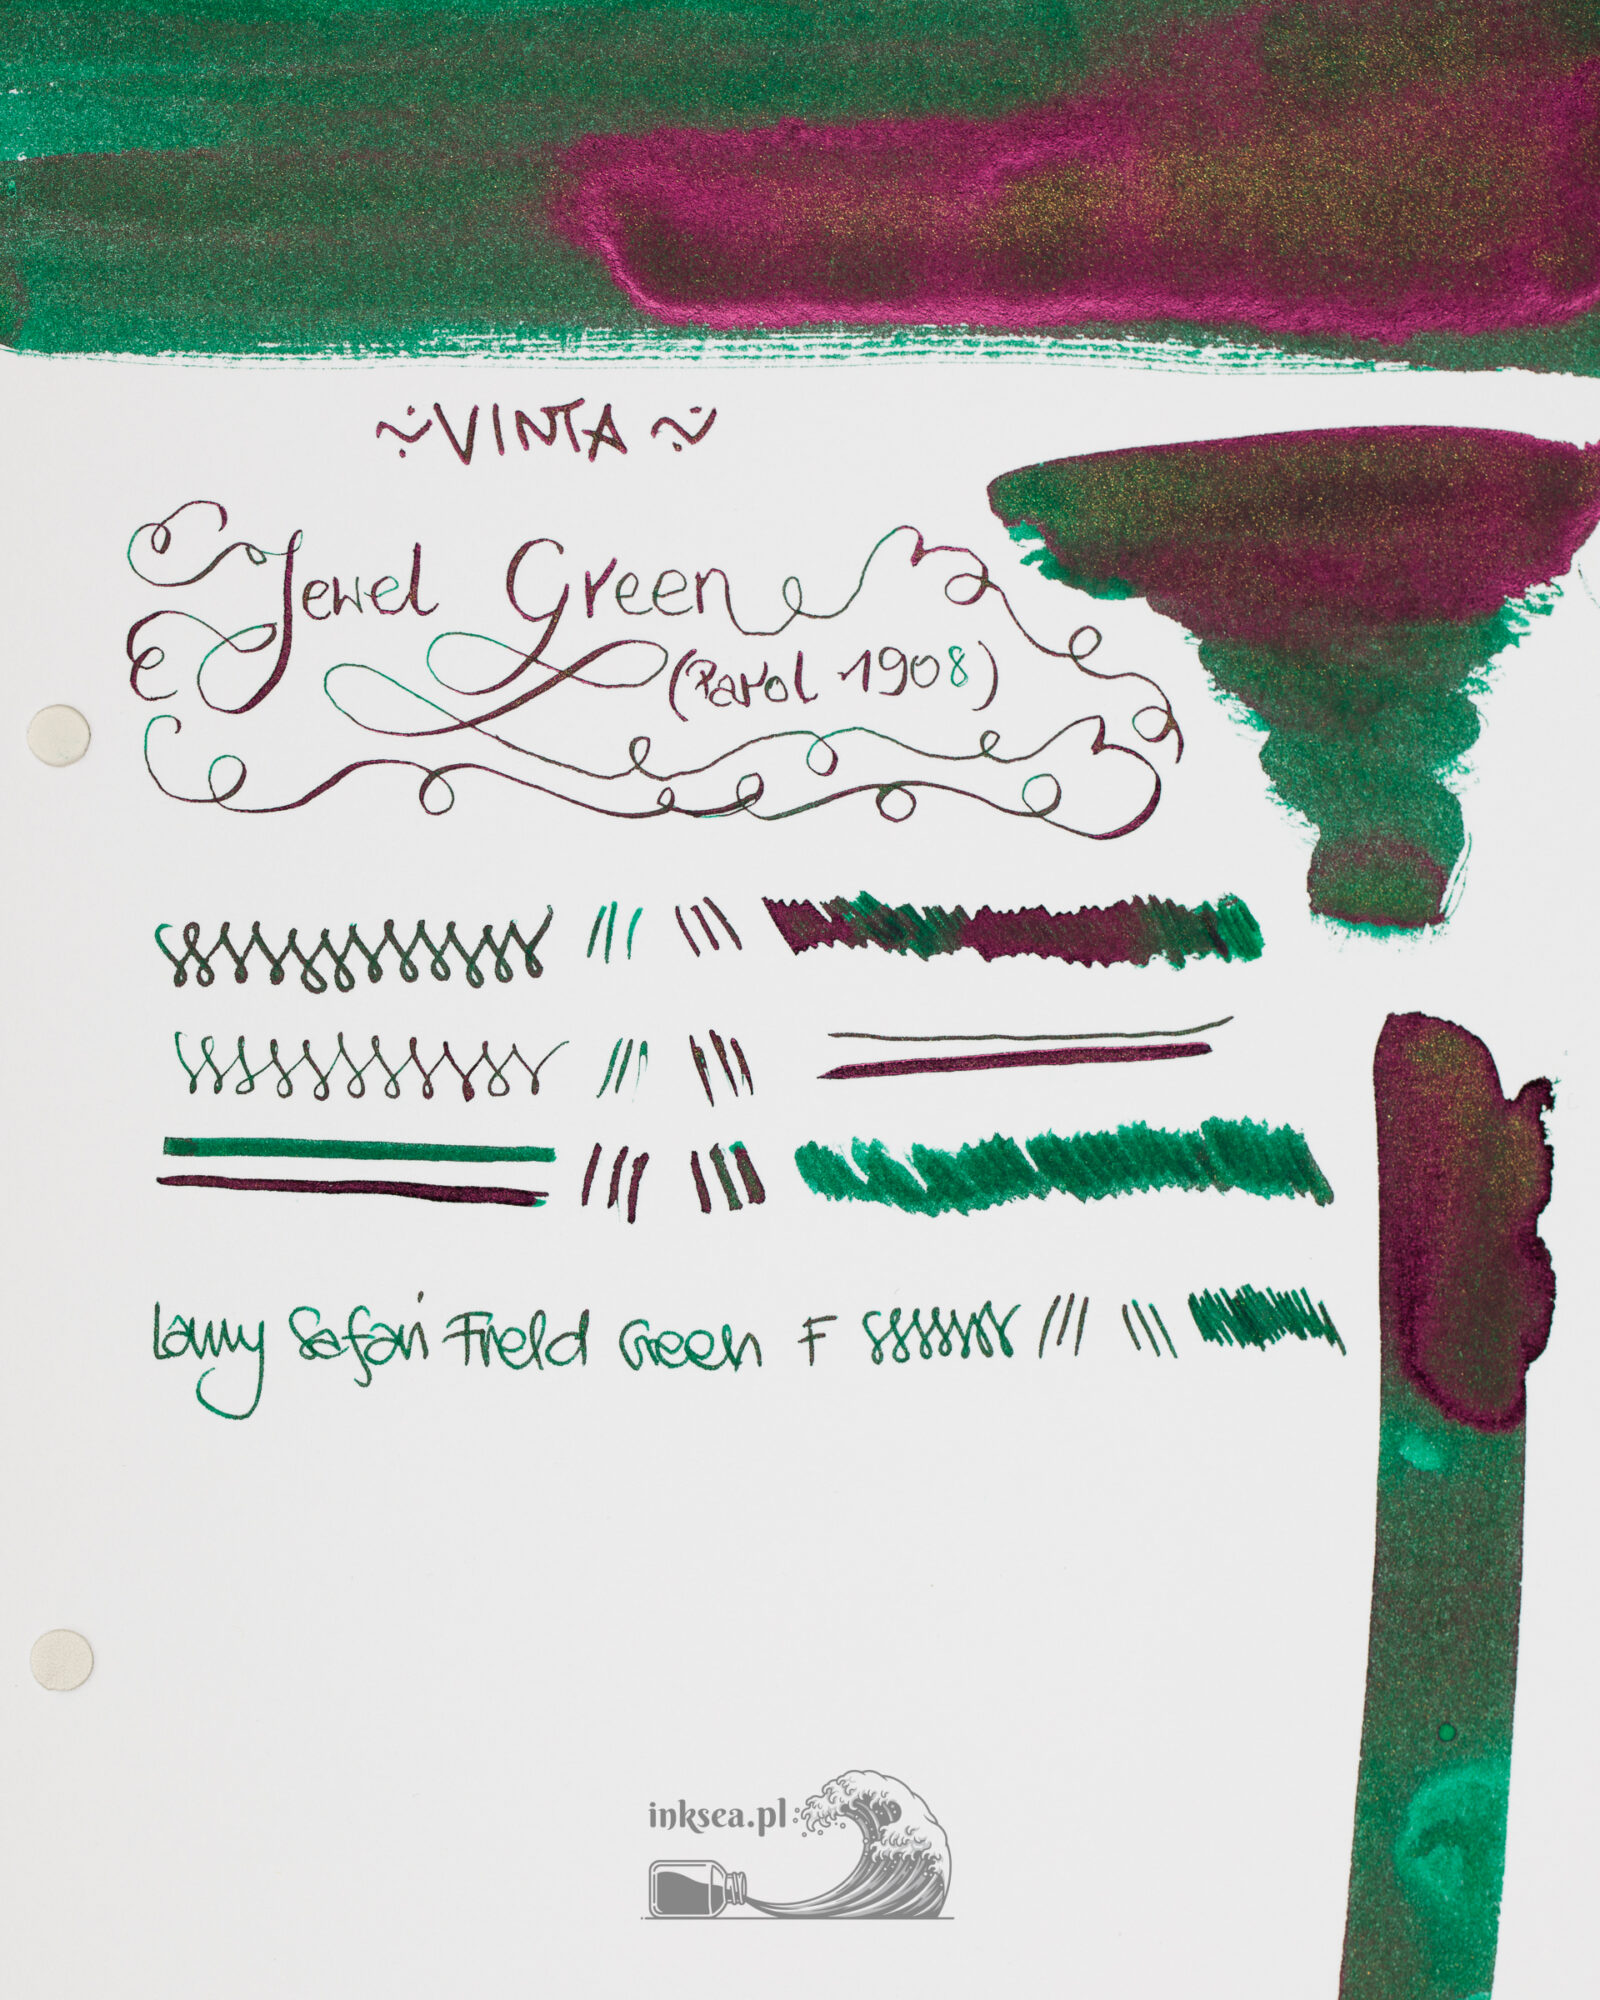 ~VINTA~
Jewel Green
(Parol 1908)
Lamy Safari Field Green F
inksea.pl